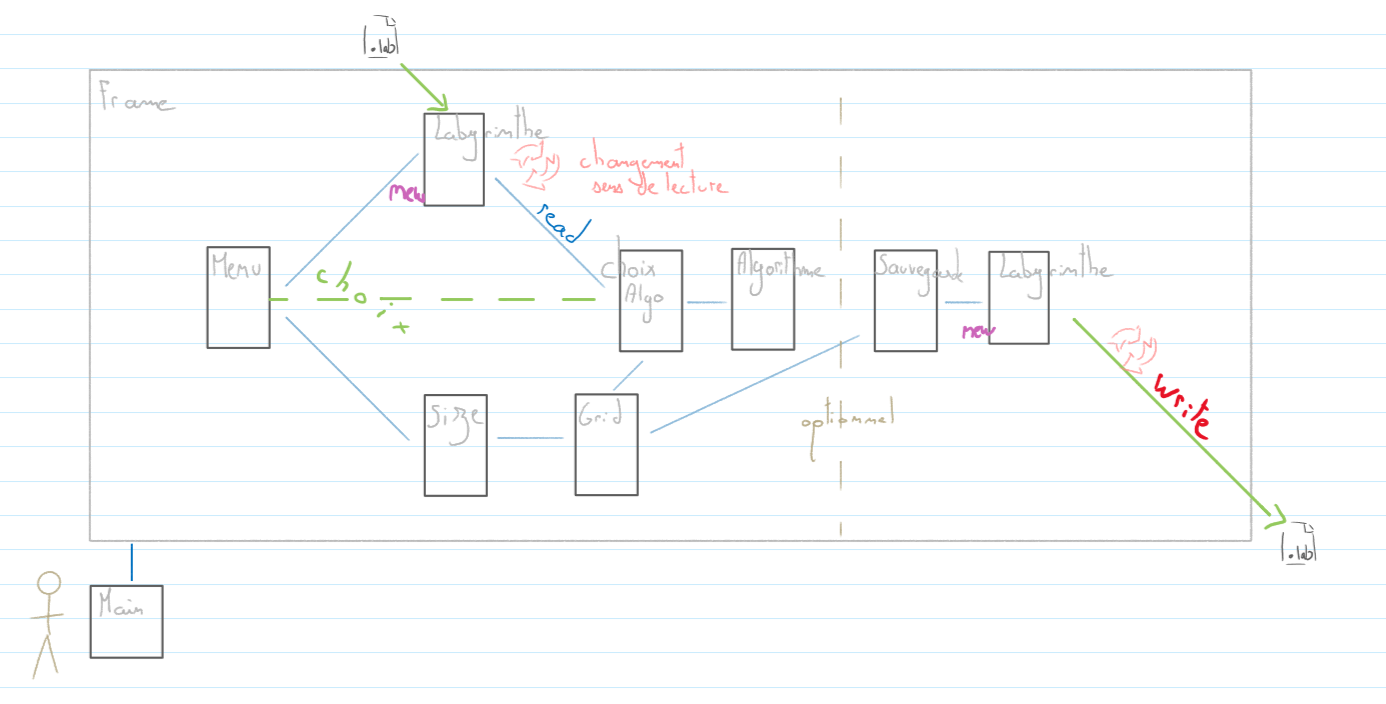 .lab
Frame
Labyrinthe
changement
sens de lecture
new
read
Menu
choix
Choix
Algo
Algorithme
Sauvegarde
Labyrinthe
new
write
Size
Grid
optionnel
.lab
Main